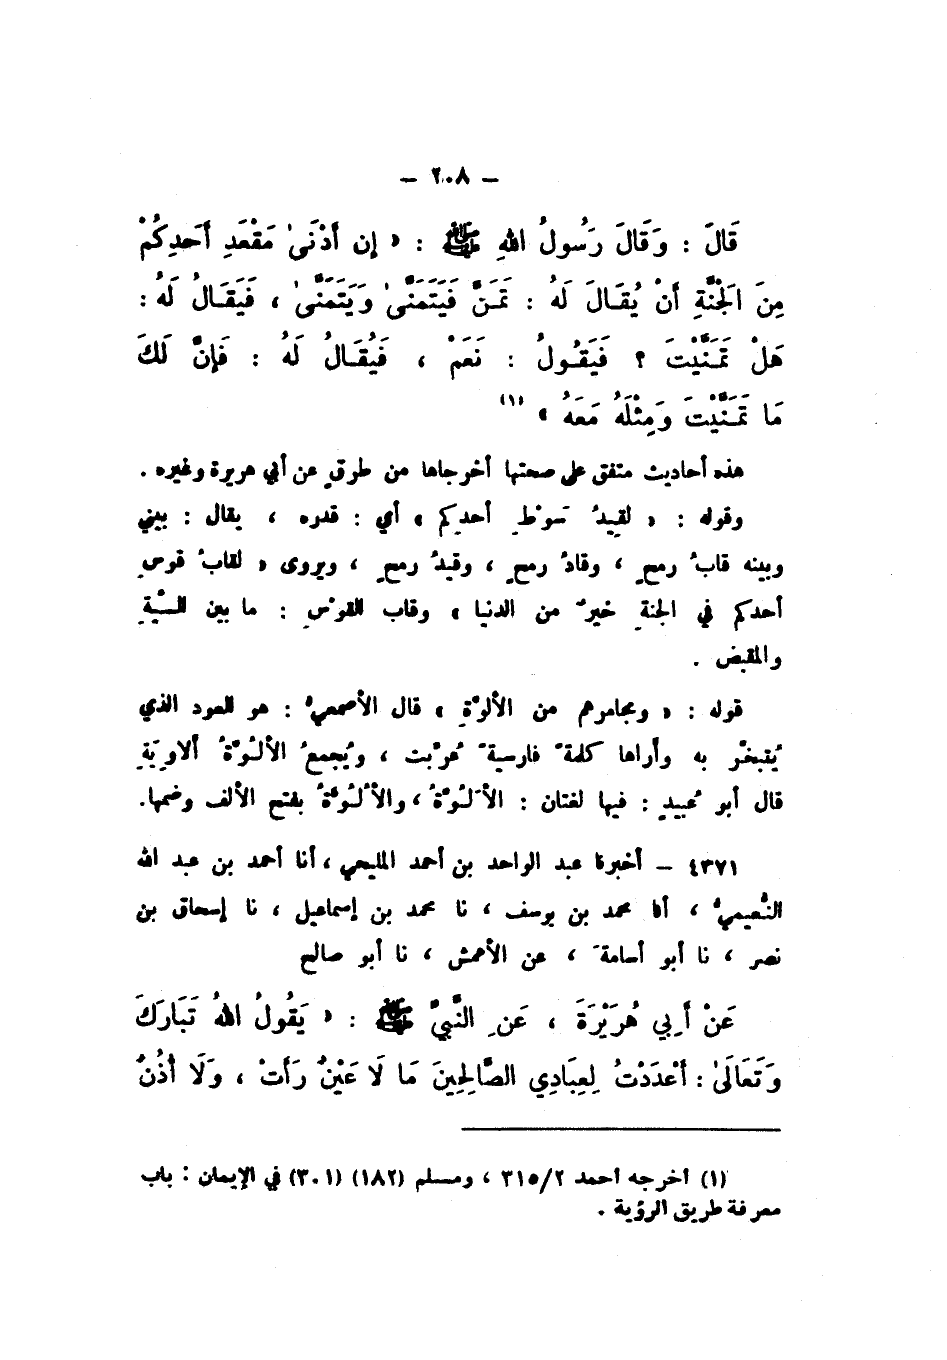 — ٢٠٨ —
قَالَ : وَقَالَ رَسُولُ اللهِ ﷺ : « إن أَدْنَىٰ مَقْعَدِ أَحَدِكُمْ
مِنَ الْجَنَّةِ أَنْ يُقَالَ لَهُ : تَمَنَّ فَيَتَمَنَّىٰ وَيَتَمَنَّىٰ ، فَيَقَالُ لَهُ :
هَلْ تَمَنَّيْتَ ؟ فَيَقُولُ : نَعَمْ ، فَيُقَالُ لَهُ : فَإِنَّ لَكَ
مَا تَمَنَّيْتَ وَمِثْلَهُ مَعَهُ » (١)
هذه أحاديث متفق على صحتها أخرجاها من طرقٍ عن أبي هريرة وغيره .
وقوله : « لقِيدُ سَوْطِ أحدِكم » أي : قدره ، يقال : بيني
وبينه قابُ رمحٍ ، وقادُ رمحٍ ، وقيدُ رمحٍ ، ويروى « لقابُ قوسِ
أحدكم في الجنةِ خيرٌ من الدنيا » وقاب القوْسِ : ما بين السِّيَةِ
والمقبض .
قوله : « ومجامرهم من الألوّةِ » قال الأصمعيُّ : هو العود الذي
يُتبخّر به وأراها كلمةً فارسيةً عُرّبت ، ويُجمعُ الألُوّةُ ألاوِيَةً
قال أبو عُبيدٍ : فيها لغتان : الأَلُوّةُ ، والأُلُوّةُ بفتح الألف وضمها.
٤٣٧١ — أخبرنا عبد الواحد بن أحمد المليحي ، أنا أحمد بن عبد الله
النُّعيميُّ ، أنا محمد بن يوسف ، نا محمد بن إسماعيل ، نا إسحاق بن
نصر ، نا أبو أسامةَ ، عن الأعمش ، نا أبو صالح
عَنْ أَبِي هُرَيْرَةَ ، عَنِ النَّبِيِّ ﷺ : « يَقُولُ اللهُ تَبَارَكَ
وَتَعَالَىٰ : أَعْدَدْتُ لِعِبَادِي الصَّالِحِينَ مَا لَا عَيْنٌ رَأَتْ ، وَلَا أُذُنٌ
(١) أخرجه أحمد ٣١٥/٢ ، ومسلم (١٨٢) (٣٠١) في الإيمان : باب
معرفة طريق الرؤية .